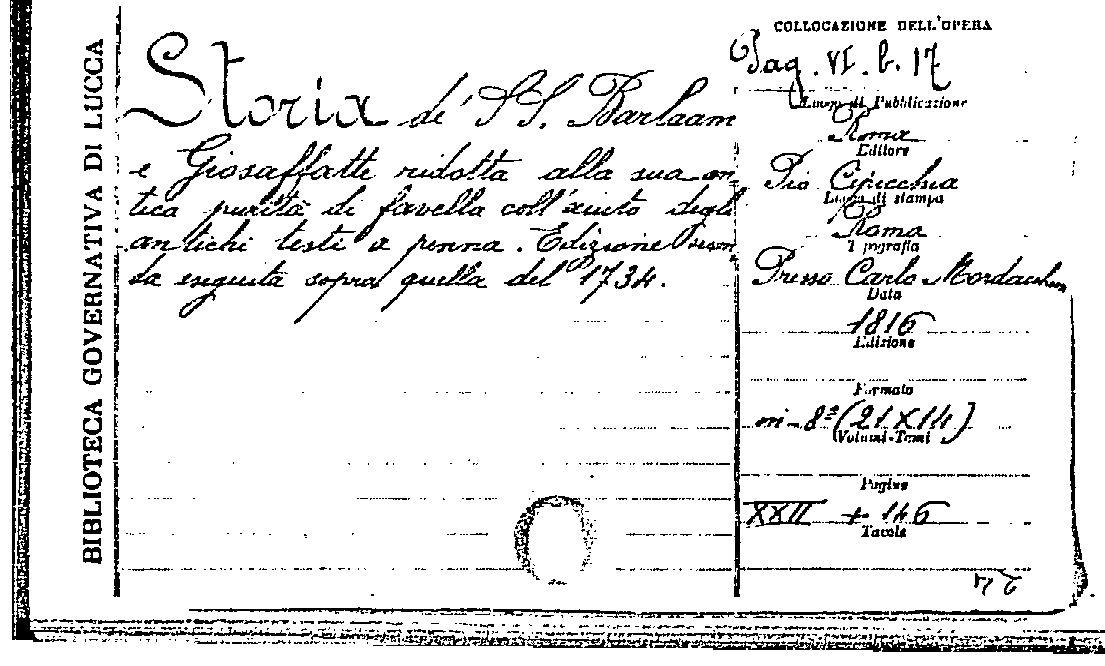 BIBLIOTECA GOVERNATIVA DI LUCCA
Storia de' S S. Barlaam
e Giosaffatte ridotta alla sua an-
tica purità di favella coll'aiuto degli
antichi testi a penna. Edizione secon-
da eseguita sopra quella del 1734.
COLLOCAZIONE DELL'OPERA
Pag. VI. b. 17
Luogo di Pubblicazione
Roma
Editore
Pio Cipicchia
Luogo di stampa
Roma
Tipografia
Presso Carlo Mordacchini
Data
1816
Edizione
Formato
in-8º (21X14)
Volumi-Tomi
Pagine
XXII + 146
Tavole